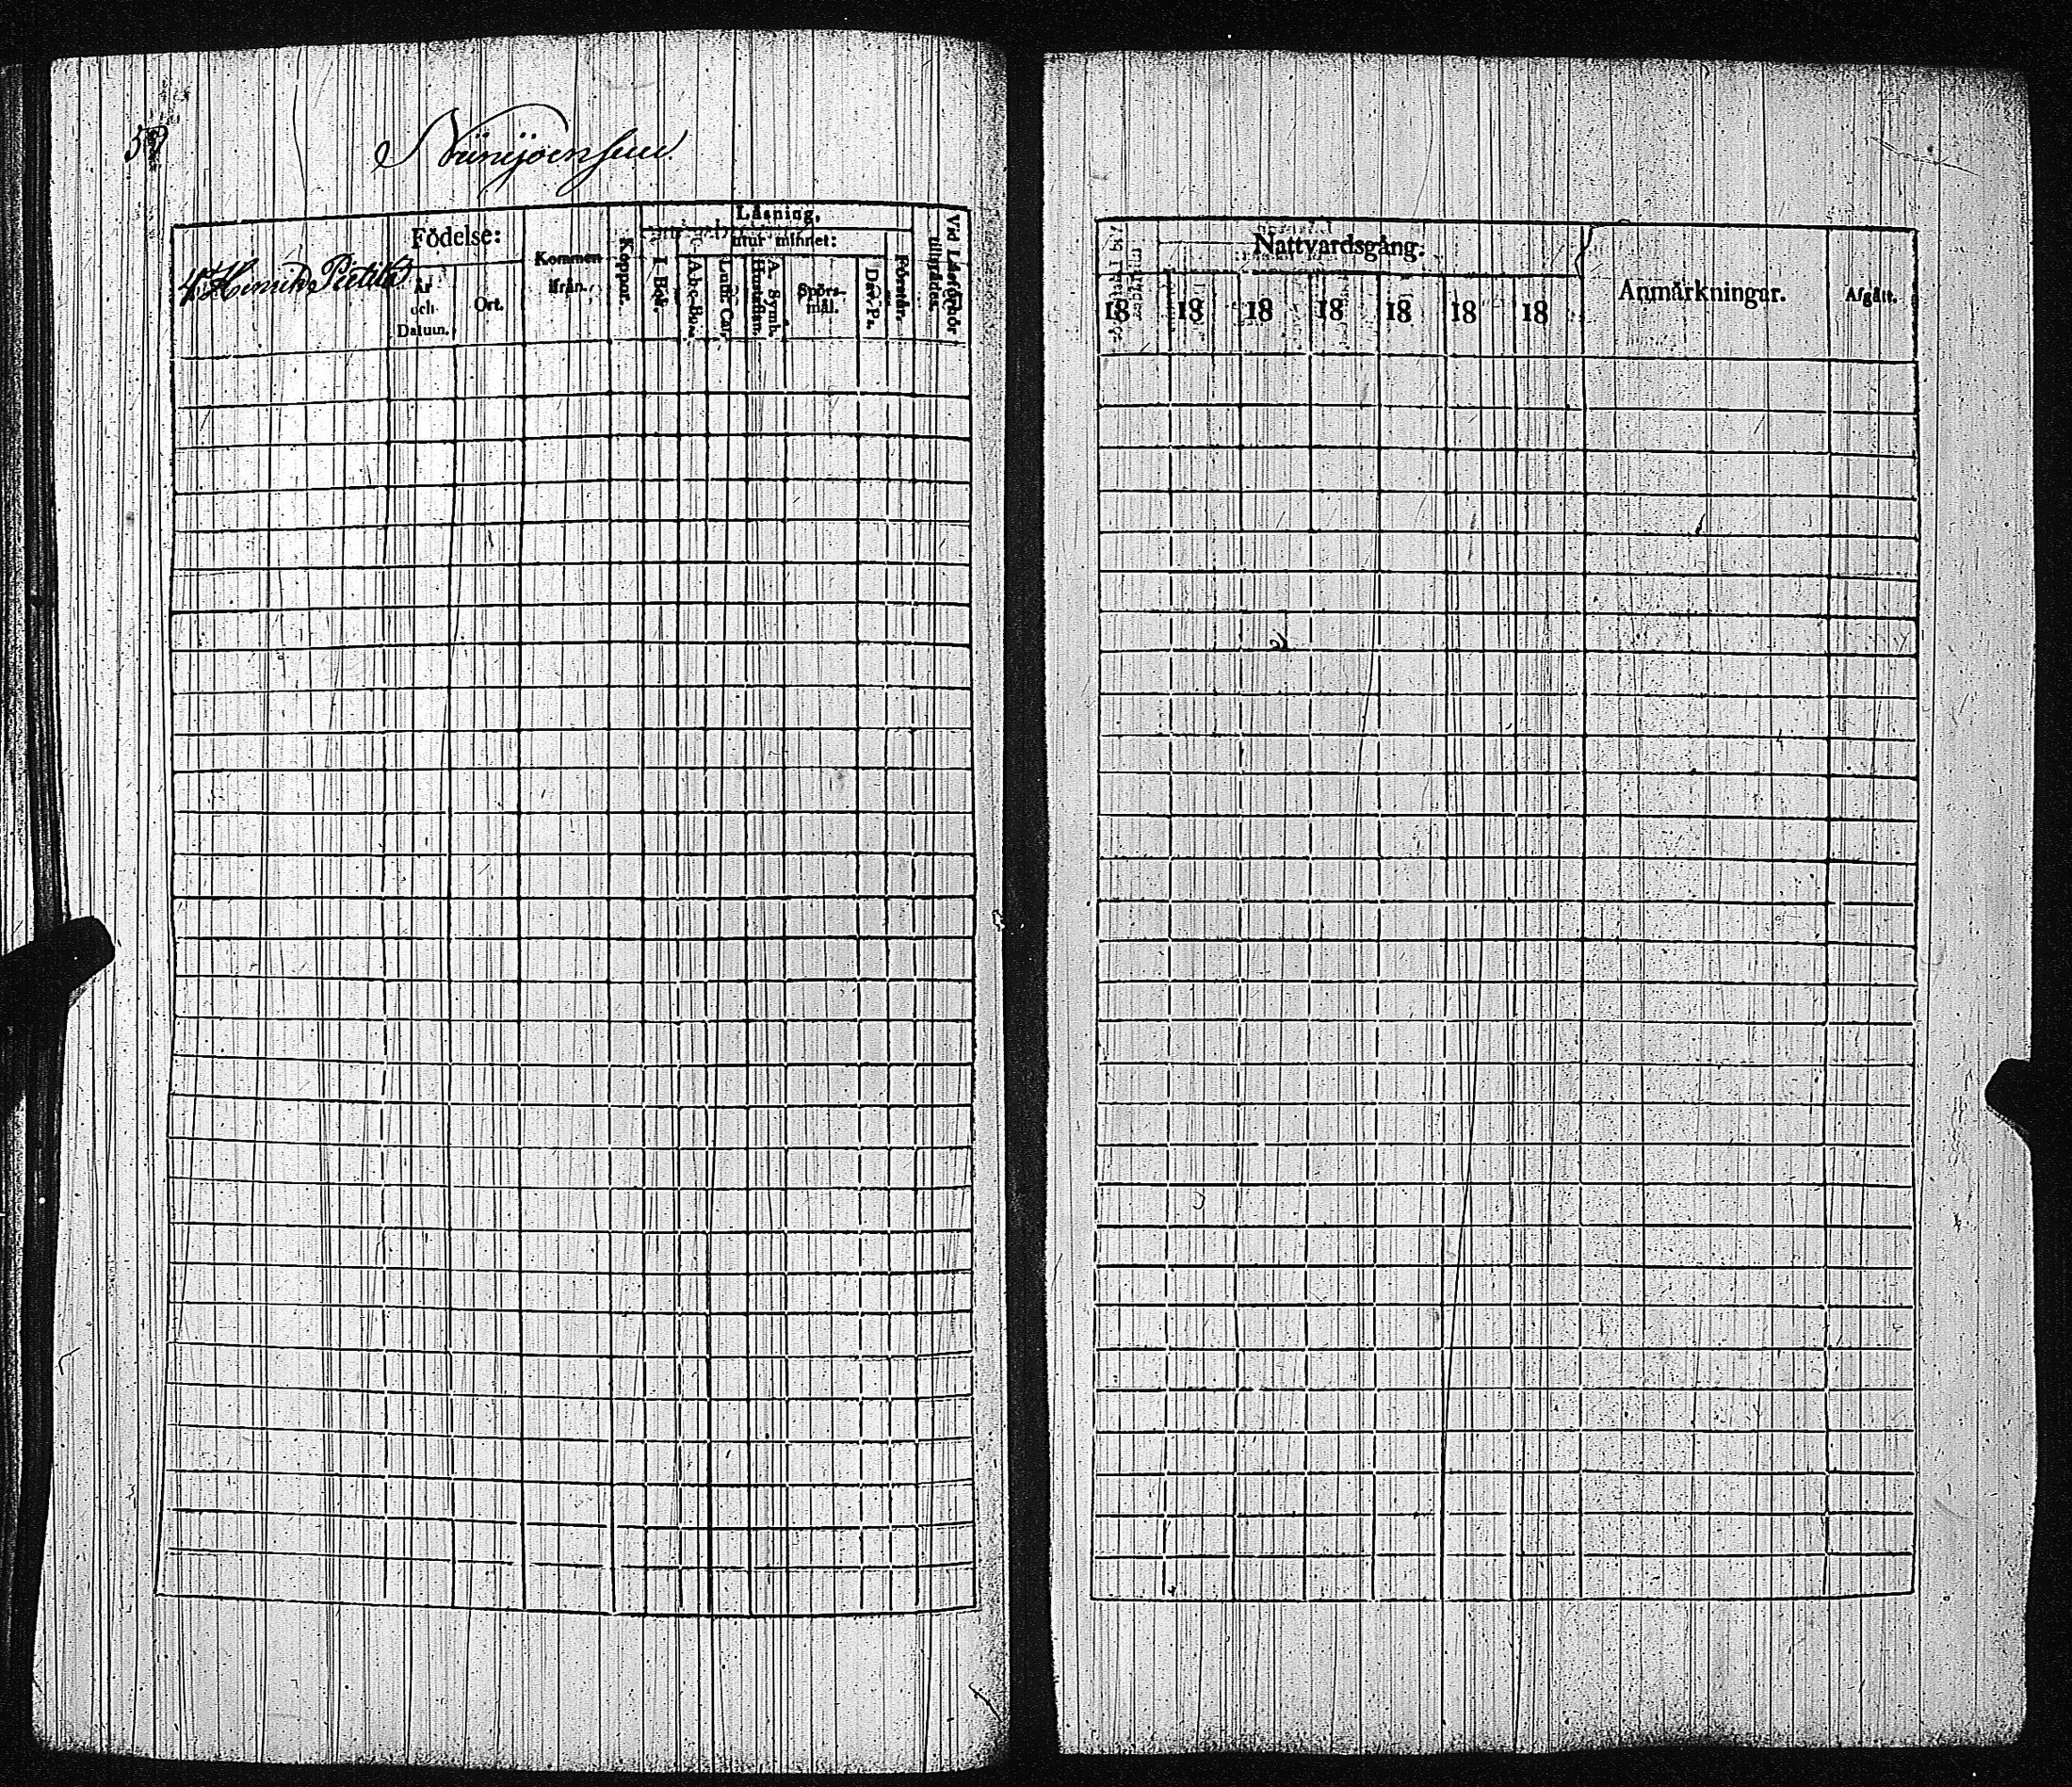 Niinijoensuu.
Födelse:
Kommen ifrån.
Koppor.
Läsning.
utur minnet:
Förstår.
Vid Läseförhör tillstädes.
4. Hinrik Pietilä
År och Datum.
Ort.
I Bok.
Abc-Bok.
Luth: Cat.
A. Symb.
Hustaflan.
Spörsmål.
Dav. Ps.
Nattvardsgång:
18 18 18 18 18 18 18
Anmärkningar.
Afgått.